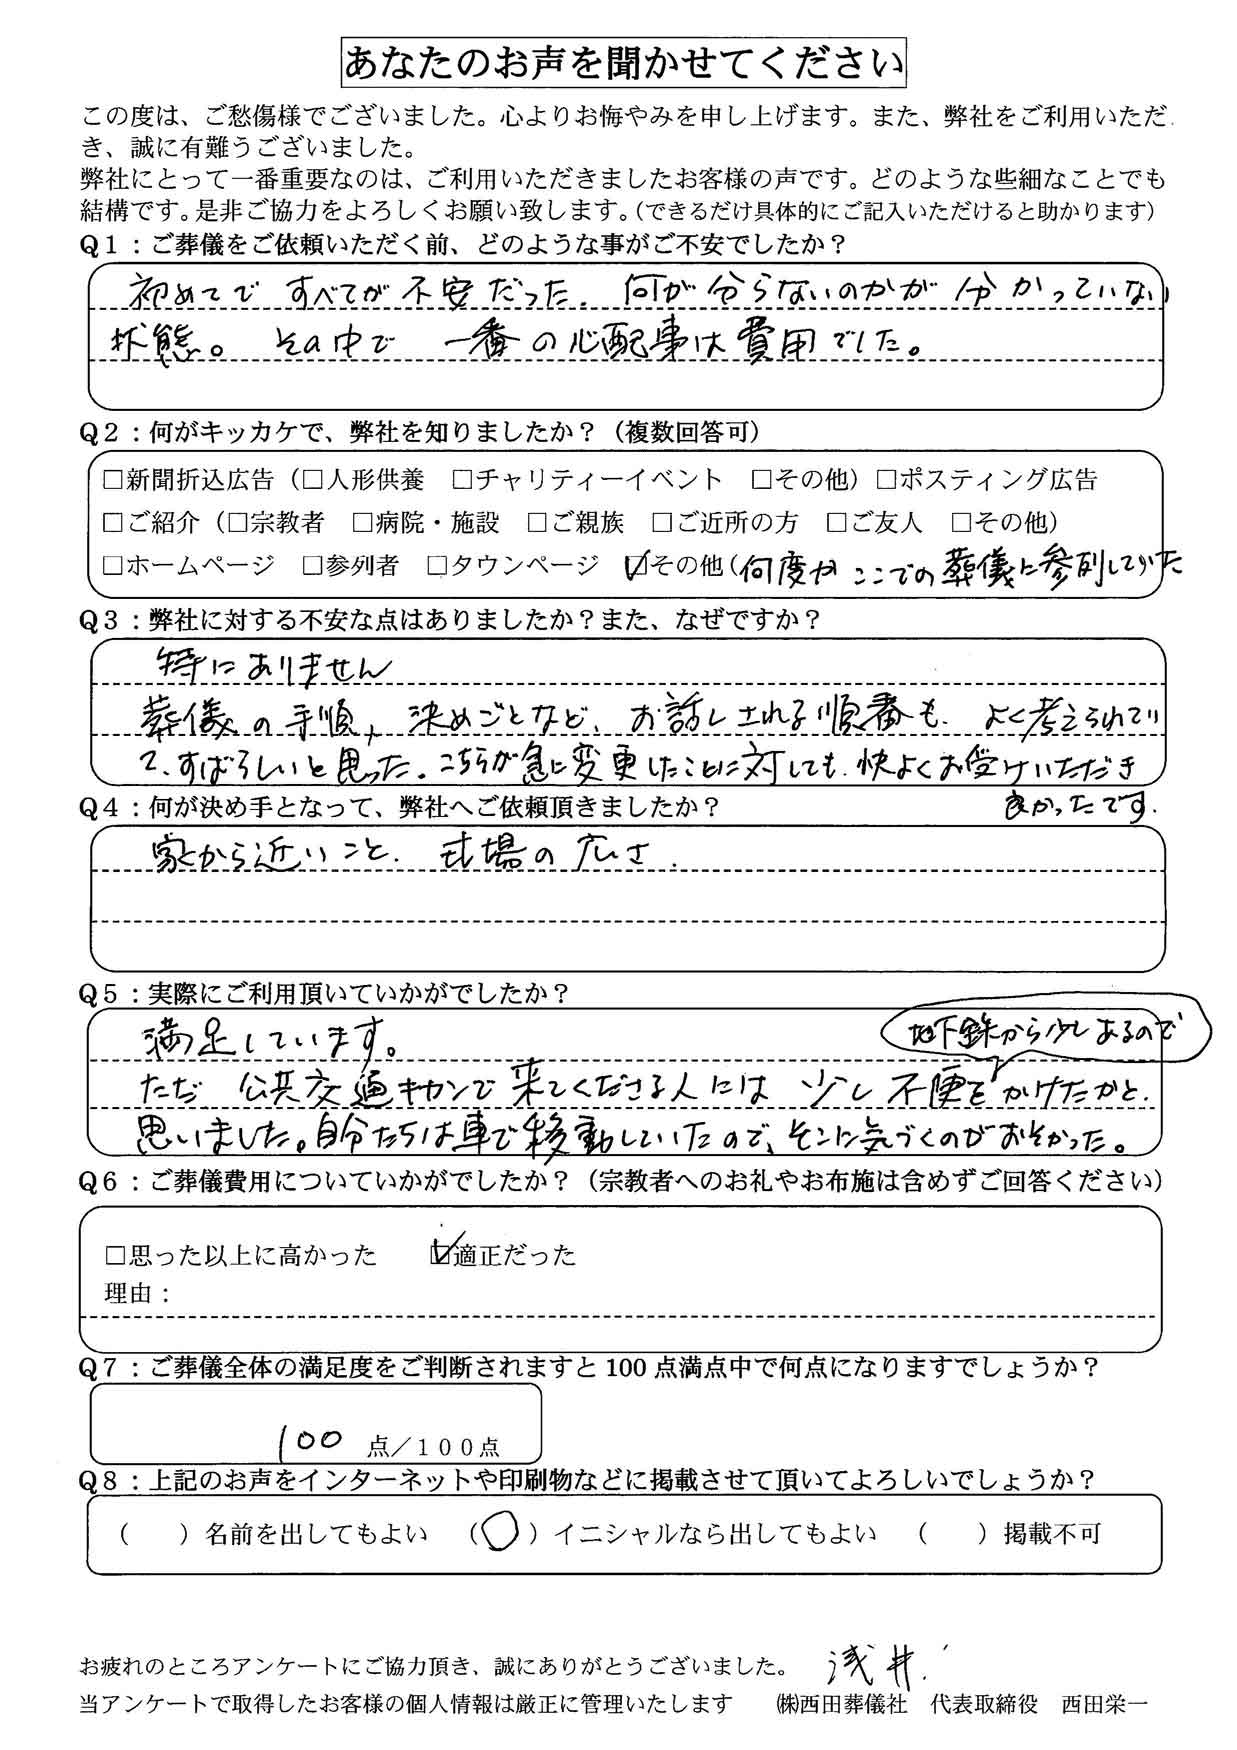 あなたのお声を聞かせてください
この度は、ご愁傷様でございました。心よりお悔やみを申し上げます。また、弊社をご利用いただ
き、誠に有難うございました。
弊社にとって一番重要なのは、ご利用いただきましたお客様の声です。どのような些細なことでも
結構です。是非ご協力をよろしくお願い致します。（できるだけ具体的にご記入いただけると助かります）
Q1：ご葬儀をご依頼いただく前、どのような事がご不安でしたか？
初めてで すべてが不安だった。何が分らないのかが分かっていない
状態。 その中で 一番の心配事は費用でした。
Q2：何がキッカケで、弊社を知りましたか？（複数回答可）
□新聞折込広告（□人形供養 □チャリティーイベント □その他）□ポスティング広告
□ご紹介（□宗教者 □病院・施設 □ご親族 □ご近所の方 □ご友人 □その他）
□ホームページ □参列者 □タウンページ ☑その他（何度か ここでの葬儀に参列していた
Q3：弊社に対する不安な点はありましたか？また、なぜですか？
特にありません
葬儀の手順、決めごとなど、お話しされる順番も、よく考えられてい
て、すばらしいと思った。こちらが急に変更したことに対しても、快よくお受けいただき
良かったです。
Q4：何が決め手となって、弊社へご依頼頂きましたか？
家から近いこと、式場の広さ。
Q5：実際にご利用頂いていかがでしたか？
満足しています。
地下鉄から少しあるので
ただ 公共交通キカンで来てくださる人には 少し不便をかけたかと、
思いました。自分たちは車で移動していたので、そこに気づくのがおそかった。
Q6：ご葬儀費用についていかがでしたか？（宗教者へのお礼やお布施は含めずご回答ください）
□思った以上に高かった ☑適正だった
理由：
Q7：ご葬儀全体の満足度をご判断されますと100点満点中で何点になりますでしょうか？
100 点／100点
Q8：上記のお声をインターネットや印刷物などに掲載させて頂いてよろしいでしょうか？
（ ）名前を出してもよい （○）イニシャルなら出してもよい （ ）掲載不可
お疲れのところアンケートにご協力頂き、誠にありがとうございました。 浅井
当アンケートで取得したお客様の個人情報は厳正に管理いたします ㈱西田葬儀社 代表取締役 西田栄一